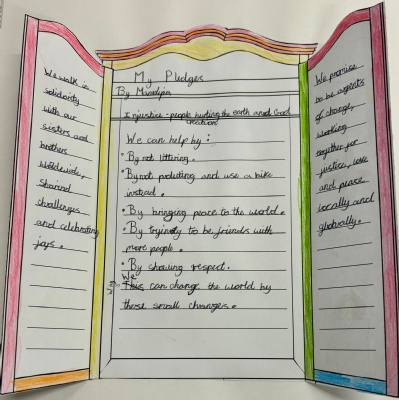 We walk in
solidarity
with our
sisters and
brothers
worldwide,
shared
challenges
and celebrating
joys.
My Pledges
By
Injustice - people hurting the earth and God
creation
We can help by:
• By not littering.
• By not poluting and use a bike
instead.
• By bringing peace to the world.
• By trying to be friends with
more people.
• By showing respect.
We
This can change the world by
these small changes.
We promise
to be agents
of change,
working
together for
justice, love
and peace
locally and
globally.